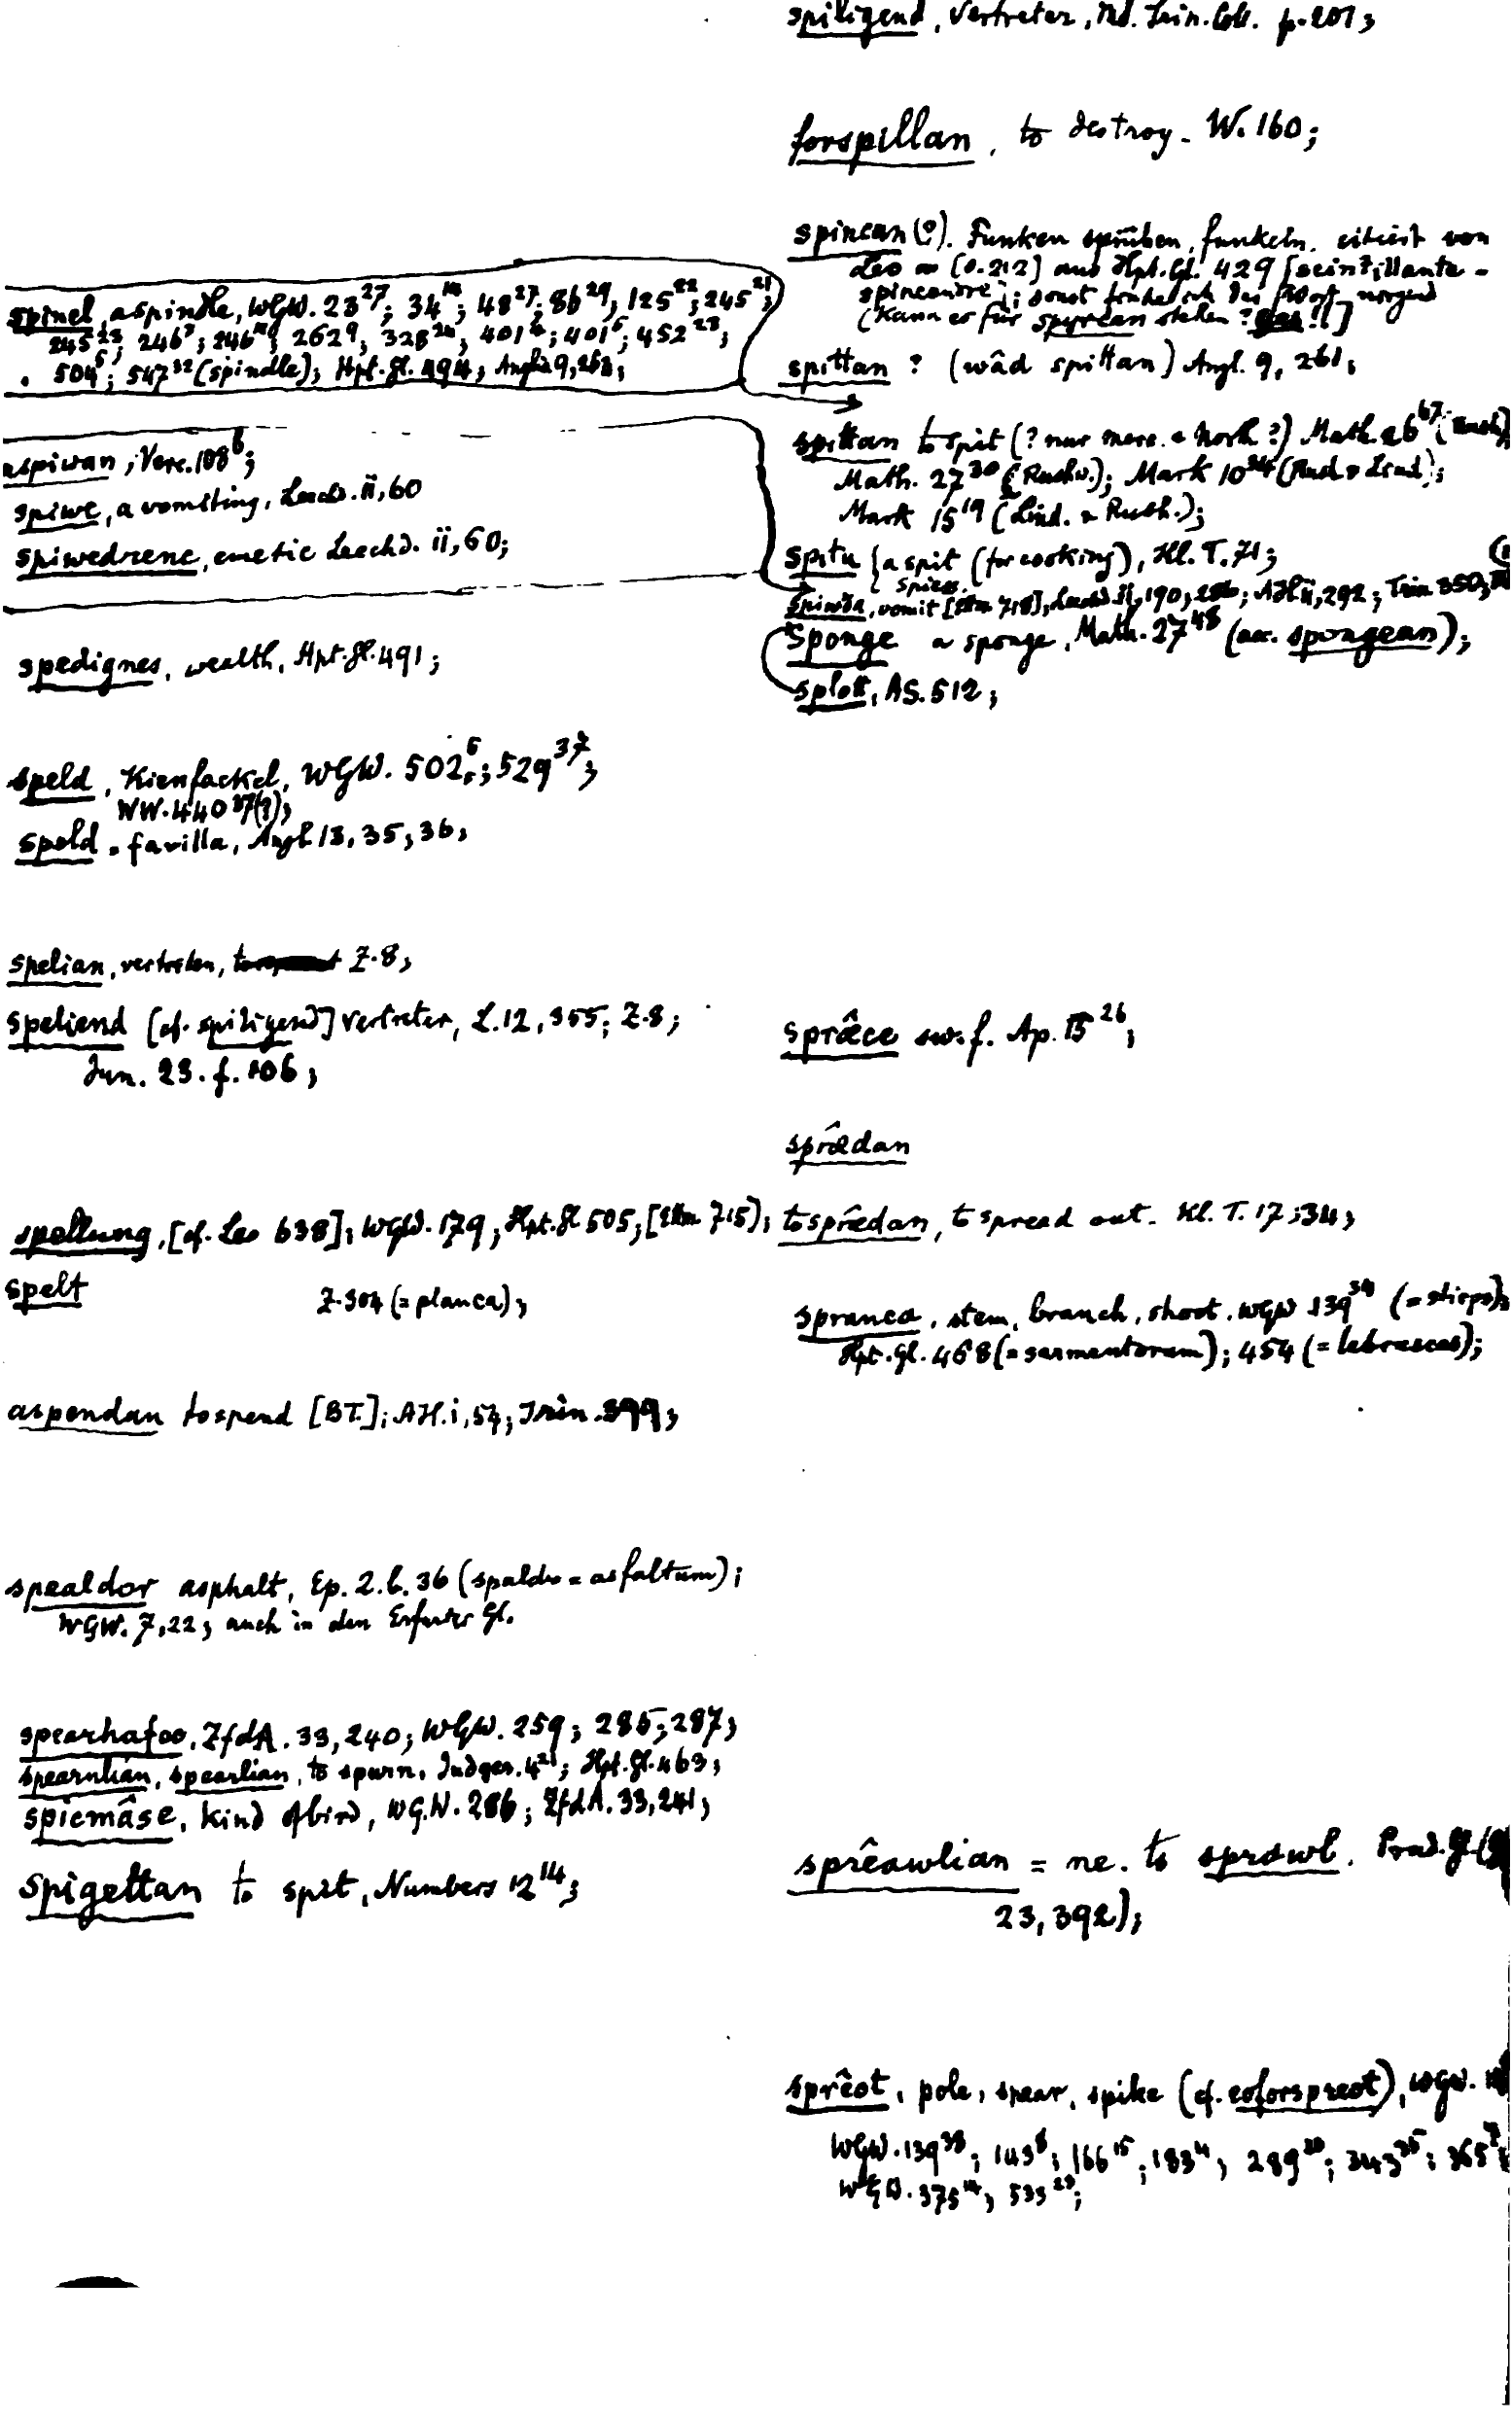 spinel, a spindle, WGW. 23²⁷; 34; 48²⁷; 86²⁹; 125²²; 245²¹;
245²³; 246³; 246; 262⁹; 328; 401; 401⁵; 452²³;
504⁵; 547³² (spindle); Hpt. Gl. 494; Anglia 9,
aspiwan, Verc. 108⁶;
spiwe, a vomiting, Leechd. ii, 60
spiwedrenc, emetic Leechd. ii, 60;
spedignes, wealth, Hpt. Gl. 491;
speld, Kienfackel, WGW. 502⁵; 529³⁷;
WW. 440³⁷(?);
speld = favilla, Angl 13, 35, 36;
spelian, vertreten, Z. 8;
speliend [cf. spiligend] Vertreter, L. 12, 355; Z. 8;
Jun. 23. f. 106;
spellung, [cf. Leo 638]; WGW. 179; Hpt. Gl 505; [Ettm 715];
spelt Z. 304 (= planca);
aspendan to spend [BT.]; AH. i, 54; 399;
spealdor asphalt, Ep. 2. b. 36 (spaldr = asfaltum);
WGW. 7, 22; auch in den Erfurter Gl.
spearhafoc, ZfdA. 33, 240; WGW. 259; 285; 287;
spearnlian, spearlian, to spurn, Judges. 4²¹; Hpt. Gl. 463;
spicmâse, kind of bird, WG.W. 286; ZfdA. 33, 241;
spigettan to spit, Numbers 12¹⁴;
spiligend, Vertreter, p. 201;
forspillan, to destroy. W. 160;
spincan (?). Funken sprühen, funkeln. citiert von
Leo [0.212] aus Hpt. Gl. 429 [scintillante =
spincendre]; sonst finde ich das Wort nirgend
(Kann es für spyrcan stehen?
spittan? (wâd spittan) Angl. 9, 261;
spittan to spit (? nur merc. & North?) Math. 26⁶⁷
Math. 27³⁰ (Rushw.); Mark 10³⁴ (Rush & Lind);
Mark 15¹⁹ (Lind. & Rush.);
spitu {a spit (for cooking), Kl. T. 71;
Spiess.
spiwða, vomit [Ettm 718], Leechd. ii, 190; AH ii, 292;
sponge a sponge, Math. 27⁴⁸ (acc. spongean);
splott, AS. 512;
sprǽce sw. f. Ap. 15²⁶;
sprǽdan
tosprǽdan, to spread out. Kl. T. 17; 34;
spranca, stem, branch, shoot. WGW 139³⁴
Hpt. Gl. 468 (= sarmentorum); 454 (= labruscas);
sprêawlian = ne. to sprawl. Prud. Gl
23, 392);
sprêot, pole, spear, spike (cf. eoforspreot), WGW.
WGW. 139³⁸; 143⁸; 166¹⁵; 183¹¹; 289; 343³⁵; 365
WGW. 375¹⁴; 533²³;